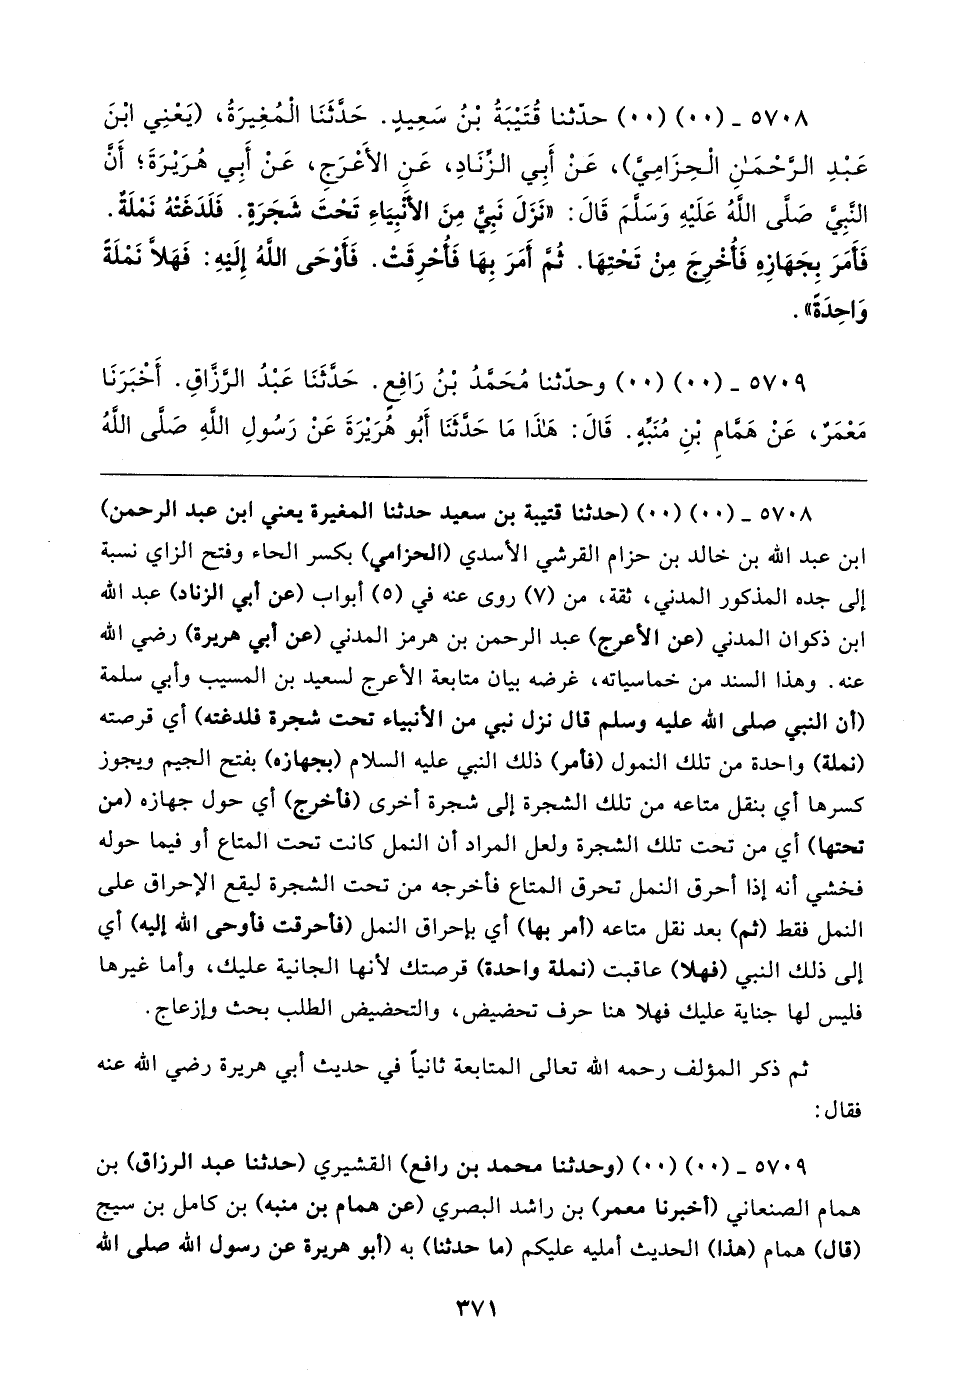 ٥٧٠٨ ـ (٠٠) (٠٠) حدّثنا قُتَيْبَةُ بْنُ سَعِيدٍ. حَدَّثَنَا الْمُغِيرَةُ، (يَعْنِي ابْنَ
عَبْدِ الرَّحْمَـٰنِ الْحِزَامِيَّ)، عَنْ أَبِي الزِّنَادِ، عَنِ الأَعْرَجِ، عَنْ أَبِي هُرَيْرَةَ؛ أَنَّ
النَّبِيَّ صَلَّى اللَّهُ عَلَيْهِ وَسَلَّمَ قَالَ: «نَزَلَ نَبِيٌّ مِنَ الأَنْبِيَاءِ تَحْتَ شَجَرَةٍ. فَلَدَغَتْهُ نَمْلَةٌ.
فَأَمَرَ بِجَهَازِهِ فَأُخْرِجَ مِنْ تَحْتِهَا. ثُمَّ أَمَرَ بِهَا فَأُحْرِقَتْ. فَأَوْحَى اللَّهُ إِلَيْهِ: فَهَلاَّ نَمْلَةً
وَاحِدَةً».
٥٧٠٩ ـ (٠٠) (٠٠) وحدّثنا مُحَمَّدُ بْنُ رَافِعٍ. حَدَّثَنَا عَبْدُ الرَّزَّاقِ. أَخْبَرَنَا
مَعْمَرٌ، عَنْ هَمَّامِ بْنِ مُنَبِّهٍ. قَالَ: هَـٰذَا مَا حَدَّثَنَا أَبُو هُرَيْرَةَ عَنْ رَسُولِ اللَّهِ صَلَّى اللَّهُ
٥٧٠٨ ـ (٠٠) (٠٠) (حدثنا قتيبة بن سعيد حدثنا المغيرة يعني ابن عبد الرحمن)
ابن عبد الله بن خالد بن حزام القرشي الأسدي (الحزامي) بكسر الحاء وفتح الزاي نسبة
إلى جده المذكور المدني، ثقة، من (٧) روى عنه في (٥) أبواب (عن أبي الزناد) عبد الله
ابن ذكوان المدني (عن الأعرج) عبد الرحمن بن هرمز المدني (عن أبي هريرة) رضي الله
عنه. وهذا السند من خماسياته، غرضه بيان متابعة الأعرج لسعيد بن المسيب وأبي سلمة
(أن النبي صلى الله عليه وسلم قال نزل نبي من الأنبياء تحت شجرة فلدغته) أي قرصته
(نملة) واحدة من تلك النمول (فأمر) ذلك النبي عليه السلام (بجهازه) بفتح الجيم ويجوز
كسرها أي بنقل متاعه من تلك الشجرة إلى شجرة أخرى (فأخرج) أي حول جهازه (من
تحتها) أي من تحت تلك الشجرة ولعل المراد أن النمل كانت تحت المتاع أو فيما حوله
فخشي أنه إذا أحرق النمل تحرق المتاع فأخرجه من تحت الشجرة ليقع الإحراق على
النمل فقط (ثم) بعد نقل متاعه (أمر بها) أي بإحراق النمل (فأحرقت فأوحى الله إليه) أي
إلى ذلك النبي (فهلا) عاقبت (نملة واحدة) قرصتك لأنها الجانية عليك، وأما غيرها
فليس لها جناية عليك فهلا هنا حرف تحضيض، والتحضيض الطلب بحث وإزعاج.
ثم ذكر المؤلف رحمه الله تعالى المتابعة ثانياً في حديث أبي هريرة رضي الله عنه
فقال:
٥٧٠٩ ـ (٠٠) (٠٠) (وحدثنا محمد بن رافع) القشيري (حدثنا عبد الرزاق) بن
همام الصنعاني (أخبرنا معمر) بن راشد البصري (عن همام بن منبه) بن كامل بن سيج
(قال) همام (هذا) الحديث أمليه عليكم (ما حدثنا) به (أبو هريرة عن رسول الله صلى الله
٣٧١